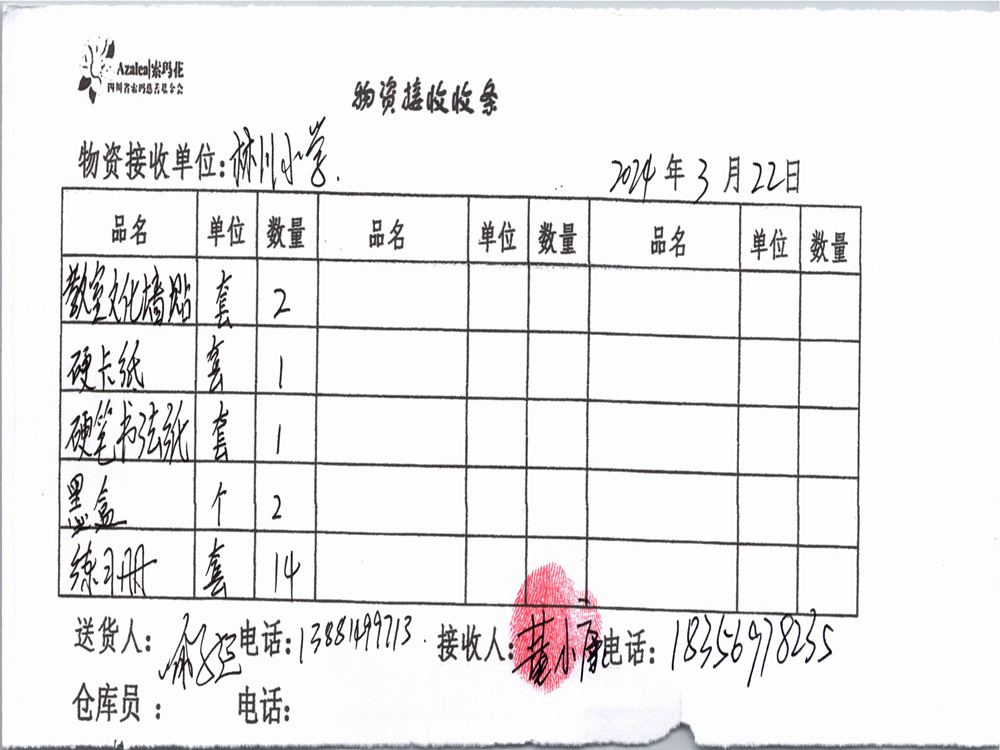 Azalea|索玛花
四川省索玛慈善基金会
物资接收收条
物资接收单位:林川小学.
2024年3月22日
品名 单位 数量 品名 单位 数量 品名 单位 数量
教室文化墙贴 套 2
硬卡纸 套 1
硬笔书法纸 套 1
墨盒 个 2
练习册 套 14
送货人: 电话:13881499713. 接收人:黄小 电话:18356978235
仓库员: 电话: